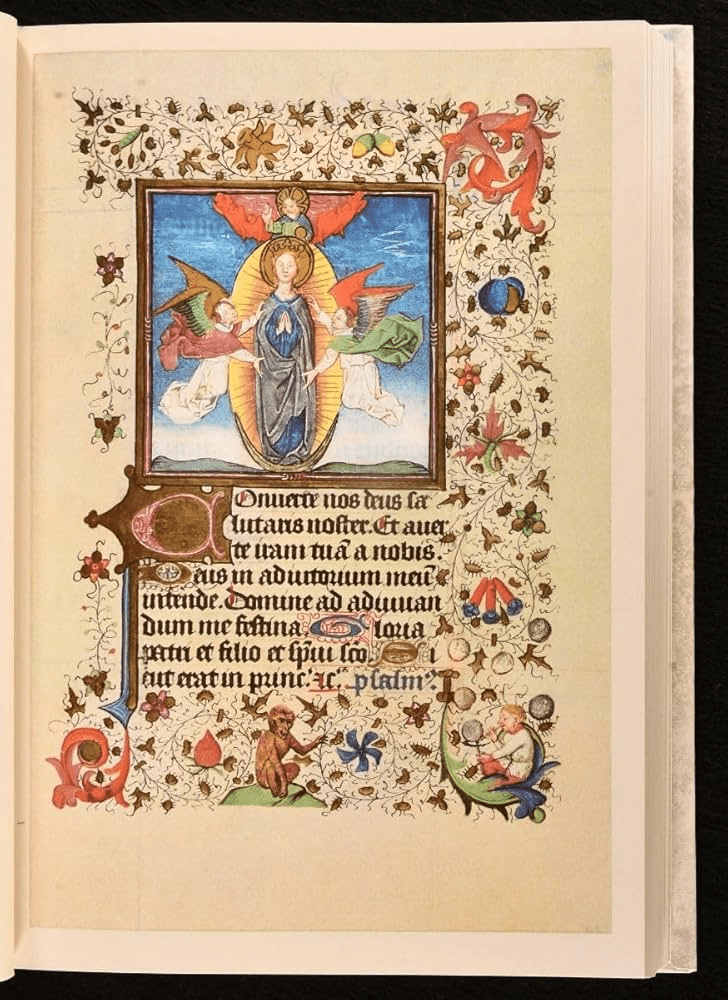 Conuerte nos deus sa
lutaris noster. Et auer
te iram tuā a nobis.
Deus in adiutorium meū
intende. Domine ad adiuuan
dum me festina. Gloria
patri et filio et sp̄ui sc̄o. Si
cut erat in princ. ⁊c. psalm⁹.